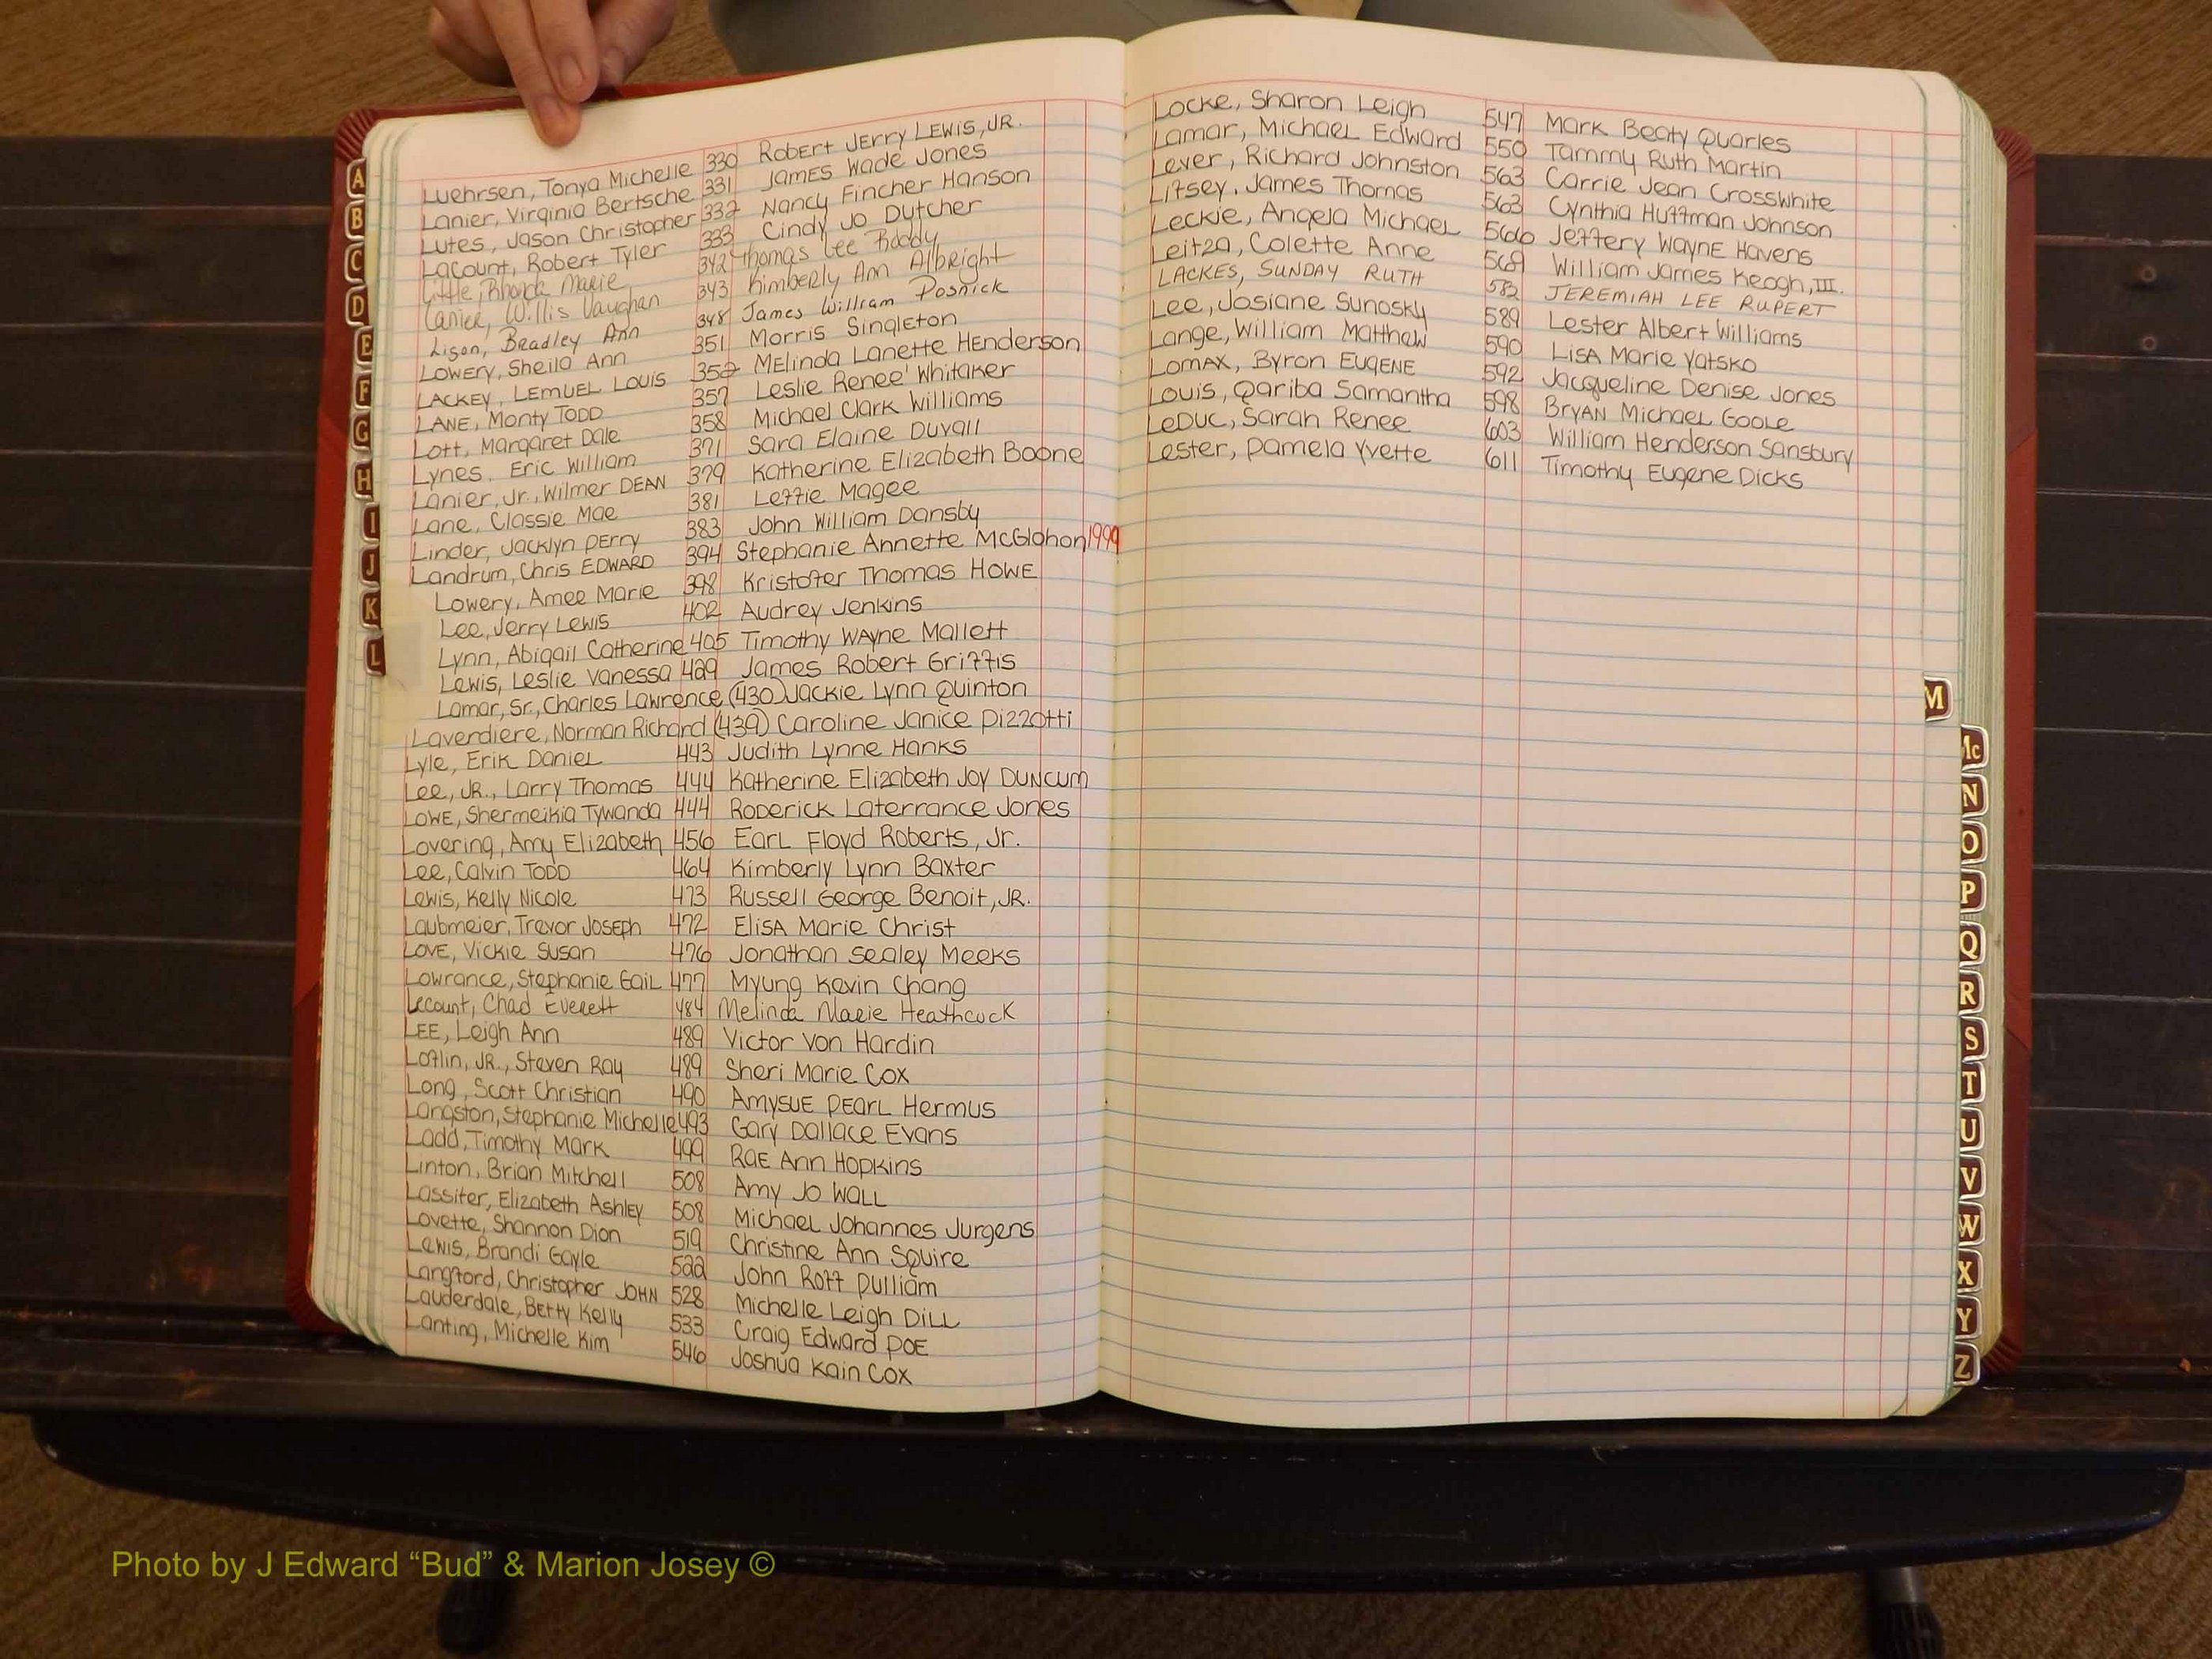 Luehrsen, Tonya Michelle 330 Robert Jerry Lewis, JR.
Lanier, Virginia Bertsche 331 James Wade Jones
Lutes, Jason Christopher 332 Nancy Fincher Hanson
LaCount, Robert Tyler 333 Cindy Jo Dutcher
Little, Rhonda Marie 342 Thomas Lee Roddy
Lanier, Willis Vaughan 343 Kimberly Ann Albright
Ligon, Bradley Ann 348 James William Posnick
Lowery, Sheila Ann 351 Morris Singleton
Lackey, Lemuel Louis 352 Melinda Lanette Henderson
Lane, Monty Todd 357 Leslie Renee' Whitaker
Lott, Margaret Dale 358 Michael Clark Williams
Lynes, Eric William 371 Sara Elaine Duvall
Lanier, Jr., Wilmer Dean 379 Katherine Elizabeth Boone
Lane, Classie Mae 381 Leffie Magee
Linder, Jacklyn Perry 383 John William Dansby
Landrum, Chris Edward 394 Stephanie Annette McGlohon 1999
Lowery, Amee Marie 398 Kristofer Thomas Howe
Lee, Jerry Lewis 402 Audrey Jenkins
Lynn, Abigail Catherine 405 Timothy Wayne Mallett
Lewis, Leslie Vanessa 429 James Robert Griffis
Lamar, Sr., Charles Lawrence (430) Jackie Lynn Quinton
Laverdiere, Norman Richard (439) Caroline Janice Pizzotti
Lyle, Erik Daniel 443 Judith Lynne Hanks
Lee, JR., Larry Thomas 444 Katherine Elizabeth Joy Duncum
Lowe, Shermeikia Tywanda 444 Roderick Laterrance Jones
Lovering, Amy Elizabeth 456 Earl Floyd Roberts, Jr.
Lee, Calvin Todd 464 Kimberly Lynn Baxter
Lewis, Kelly Nicole 473 Russell George Benoit, JR.
Laubmeier, Trevor Joseph 472 Elisa Marie Christ
Love, Vickie Susan 476 Jonathan Sealey Meeks
Lowrance, Stephanie Gail 477 Myung Kevin Chang
Lecount, Chad Everett 484 Melinda Marie Heathcock
Lee, Leigh Ann 489 Victor Von Hardin
Loflin, JR., Steven Ray 489 Sheri Marie Cox
Long, Scott Christian 490 Amysue Pearl Hermus
Langston, Stephanie Michelle 493 Gary Dallace Evans
Ladd, Timothy Mark 499 Rae Ann Hopkins
Linton, Brian Mitchell 508 Amy Jo Wall
Lassiter, Elizabeth Ashley 508 Michael Johannes Jurgens
Lovette, Shannon Dion 519 Christine Ann Squire
Lewis, Brandi Gayle 522 John Roff Pulliam
Langford, Christopher John 528 Michelle Leigh Dill
Lauderdale, Betty Kelly 533 Craig Edward Poe
Lanting, Michelle Kim 546 Joshua Kain Cox
Locke, Sharon Leigh 547 Mark Beaty Quarles
Lamar, Michael Edward 550 Tammy Ruth Martin
Lever, Richard Johnston 563 Carrie Jean Crosswhite
Litsey, James Thomas 563 Cynthia Huffman Johnson
Leckie, Angela Michael 566 Jeffery Wayne Havens
Leitza, Colette Anne 569 William James Keogh, III.
LACKES, SUNDAY RUTH 582 JEREMIAH LEE RUPERT
Lee, Josiane Sunosky 589 Lester Albert Williams
Lange, William Matthew 590 Lisa Marie Yatsko
Lomax, Byron Eugene 592 Jacqueline Denise Jones
Louis, Qariba Samantha 598 Bryan Michael Goole
LeDuc, Sarah Renee 603 William Henderson Sansbury
Lester, Pamela Yvette 611 Timothy Eugene Dicks
A
B
C
D
E
F
G
H
I
J
K
L
M
Mc
N
O
P
Q
R
S
T
U
V
W
X
Y
Z
Photo by J Edward “Bud” & Marion Josey ©